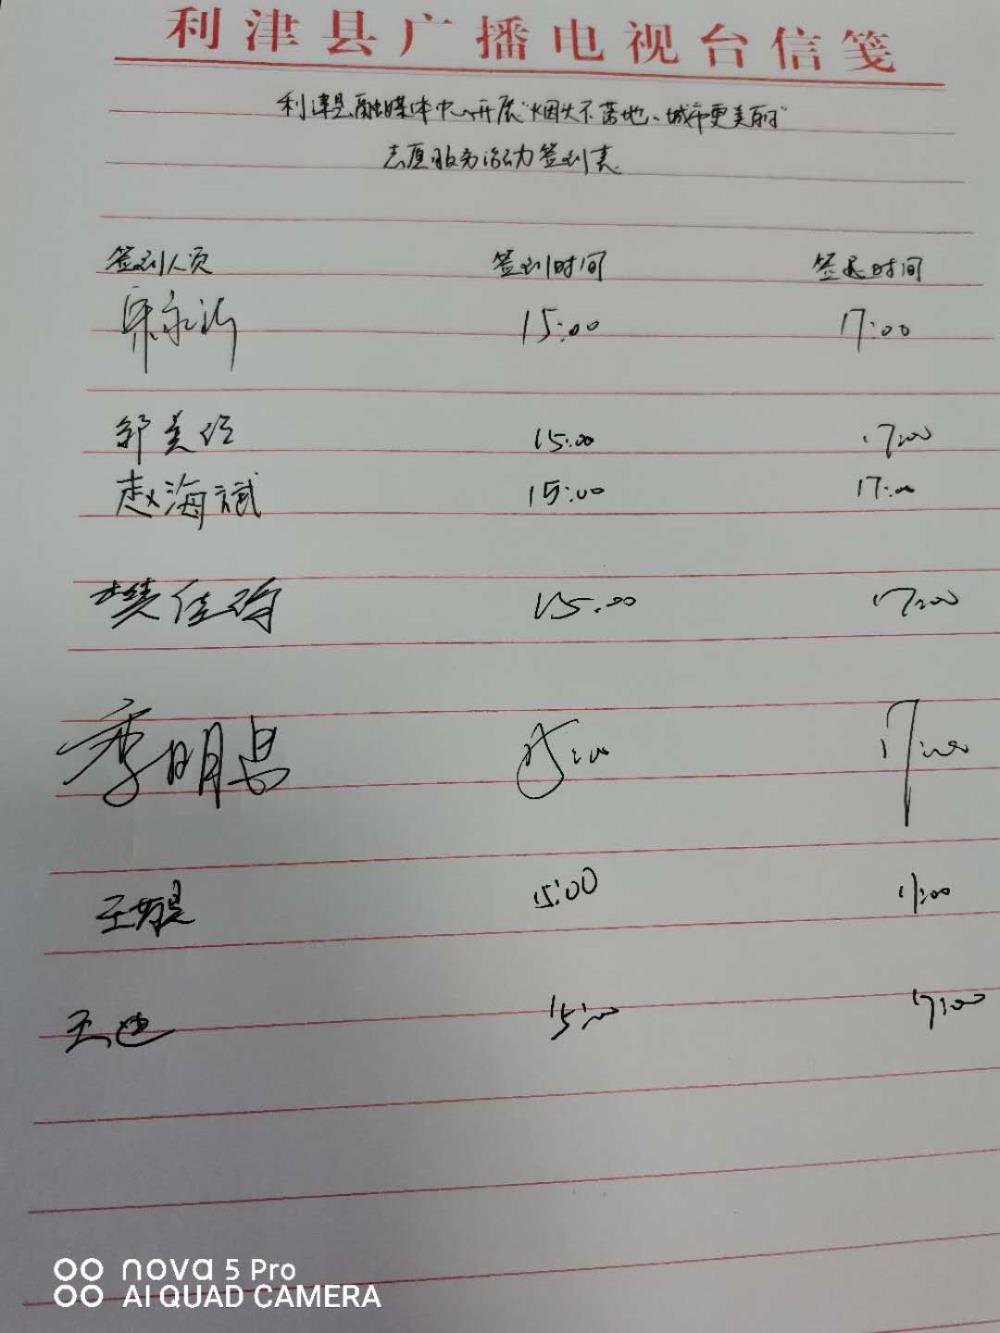 利津县广播电视台信笺
利津县融媒体中心开展“烟头不落地、城市更美丽”
志愿服务活动签到表
签到人员 签到时间 签退时间
15:00 17:00
郭美红 15:00 17:00
赵海斌 15:00 17:00
樊佳 15:00 17:00
李明 15:00 17:00
王 15:00 17:00
王 15:00 17:00
nova 5 Pro
AI QUAD CAMERA